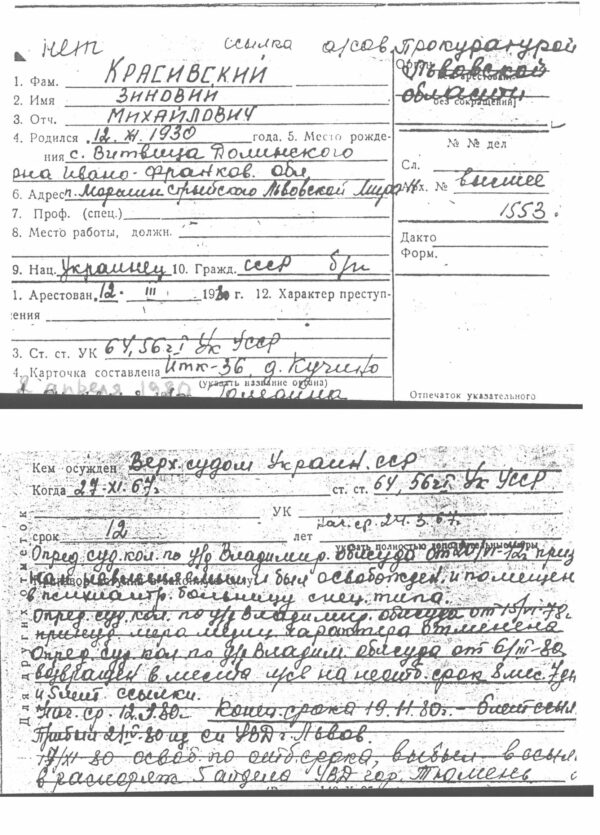 нет ссылка а/сов. Прокуратурой
Львовской
области
без сокращений)
1. Фам. КРАСИВСКИЙ
2. Имя ЗИНОВИЙ
3. Отч. МИХАЙЛОВИЧ
4. Родился 12. XI. 1930 года. 5. Место рожде-
ния с. Витвица Долинского
р-на Ивано-Франков. обл.
6. Адрес п. Моршин Стрыйского Львовской
7. Проф. (спец.)
8. Место работы, должн.
9. Нац. Украинец 10. Гражд. СССР б/п
1. Арестован 12. III 1980 г. 12. Характер преступ-
ения
3. Ст. ст. УК 64, 56 ч I УК УССР
4. Карточка составлена ИТК-36, д. Кучино
(указать название органа)
2 апреля 1980
№ № дел
Сл.
Арх. № высшее
1553.
Дакто
Форм.
Отпечаток указательного
Кем осужден Верх. судом Украин. ССР
Когда 27-XI.67г. ст. ст. 64, 56 ч I УК УССР
УК
срок 12 лет нач. ср. 24.3.67г.
указать полностью дополнительные меры
Опред. суд. кол. по у/д Владимир. облсуда от
невменяемым и был освобожден и помещен
в психиатр. больницу спец. типа.
Опред. суд. кол. по у/д Владимир. облсуда от 15/VI-78г.
принуд. мера медиц. характера отменена
Опред. суд. кол. по у/д Владим. облсуда от 6/III-80
возвращен в места л/св на неотб. срок 8 мес. 7 дн
и 5 лет ссылки.
Нач. ср. 12.3.80г. Конец срока 19.11.80г. – 5 лет ссыл.
Прибыл 2/IV-80 из си УВД г. Львов.
19/XI 80 освоб. по отб. срока, выбыл в ссыл.
в распоряж 5 отдела УВД гор. Тюмень
Для других отметок